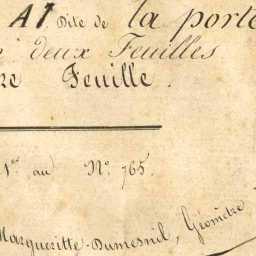 A1 Dite de la porte
deux Feuilles
re Feuille.
N° 1er au N° 765.
Margueritte-Dumesnil, Géomètre